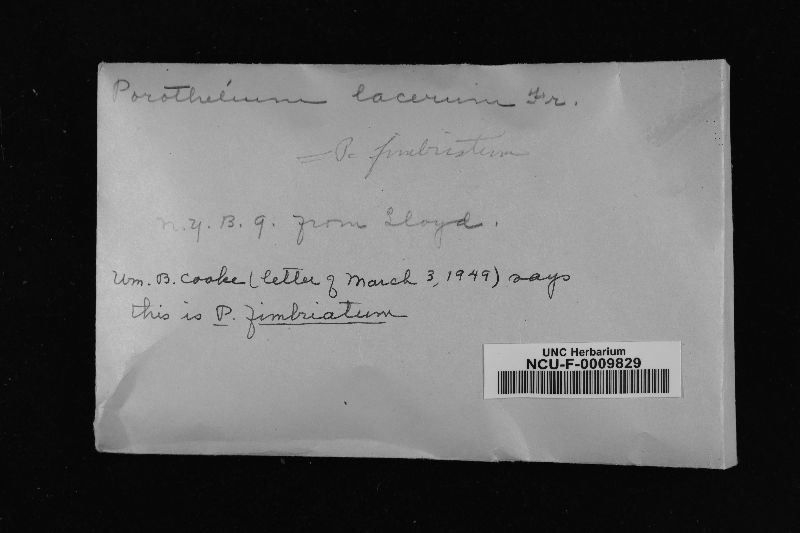 Porothelium lacerum Fr.
= P. fimbriatum
N.Y.B.G. from Lloyd.
Wm. B. Cooke (letter of March 3, 1949) says
this is P. fimbriatum
UNC Herbarium
NCU-F-0009829